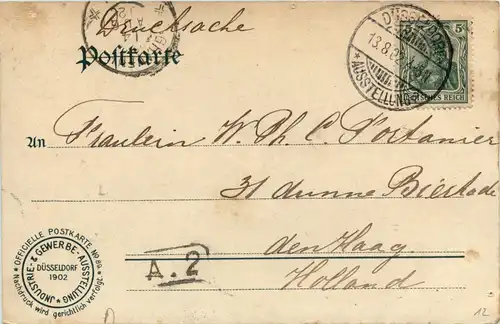 Drucksache
Postkarte
DÜSSELDORF
13.8.02
* AUSSTELLUNG *
5
DEUTSCHES REICH
An Fraulein W. Ph. C. Portanier
31 dunne Bierkade
den Haag
Holland
A.2
* OFFICIELLE POSTKARTE No 80 *
Nachdruck wird gerichtlich verfolgt.
INDUSTRIE- & GEWERBE-AUSSTELLUNG
DÜSSELDORF
1902
12